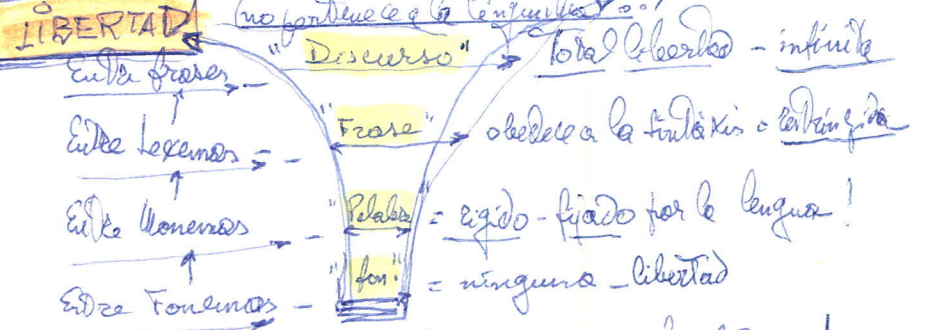 LIBERTAD (no pertenece a la lengua
Entre frases - "Discurso" Total libertad - infinita
Entre Lexemas = - "Frase" obedece a la sintáxis = restringida
Entre Monemas - "Palabra" = rigido - fijado por la lengua!
Entre Fonemas - "fon." = ninguna - libertad